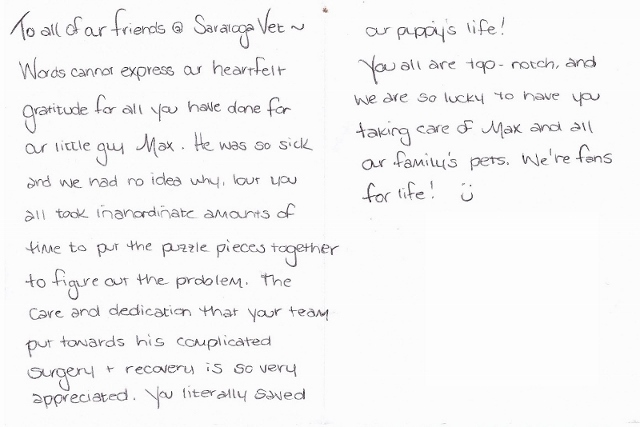 To all of our friends @ Saratoga Vet ~
Words cannot express our heartfelt
gratitude for all you have done for
our little guy Max. He was so sick
and we had no idea why, but you
all took inanordinate amounts of
time to put the puzzle pieces together
to figure out the problem. The
care and dedication that your team
put towards his complicated
surgery + recovery is so very
appreciated. You literally saved
our puppy's life!
You all are top-notch, and
we are so lucky to have you
taking care of Max and all
our family's pets. We're fans
for life! :)